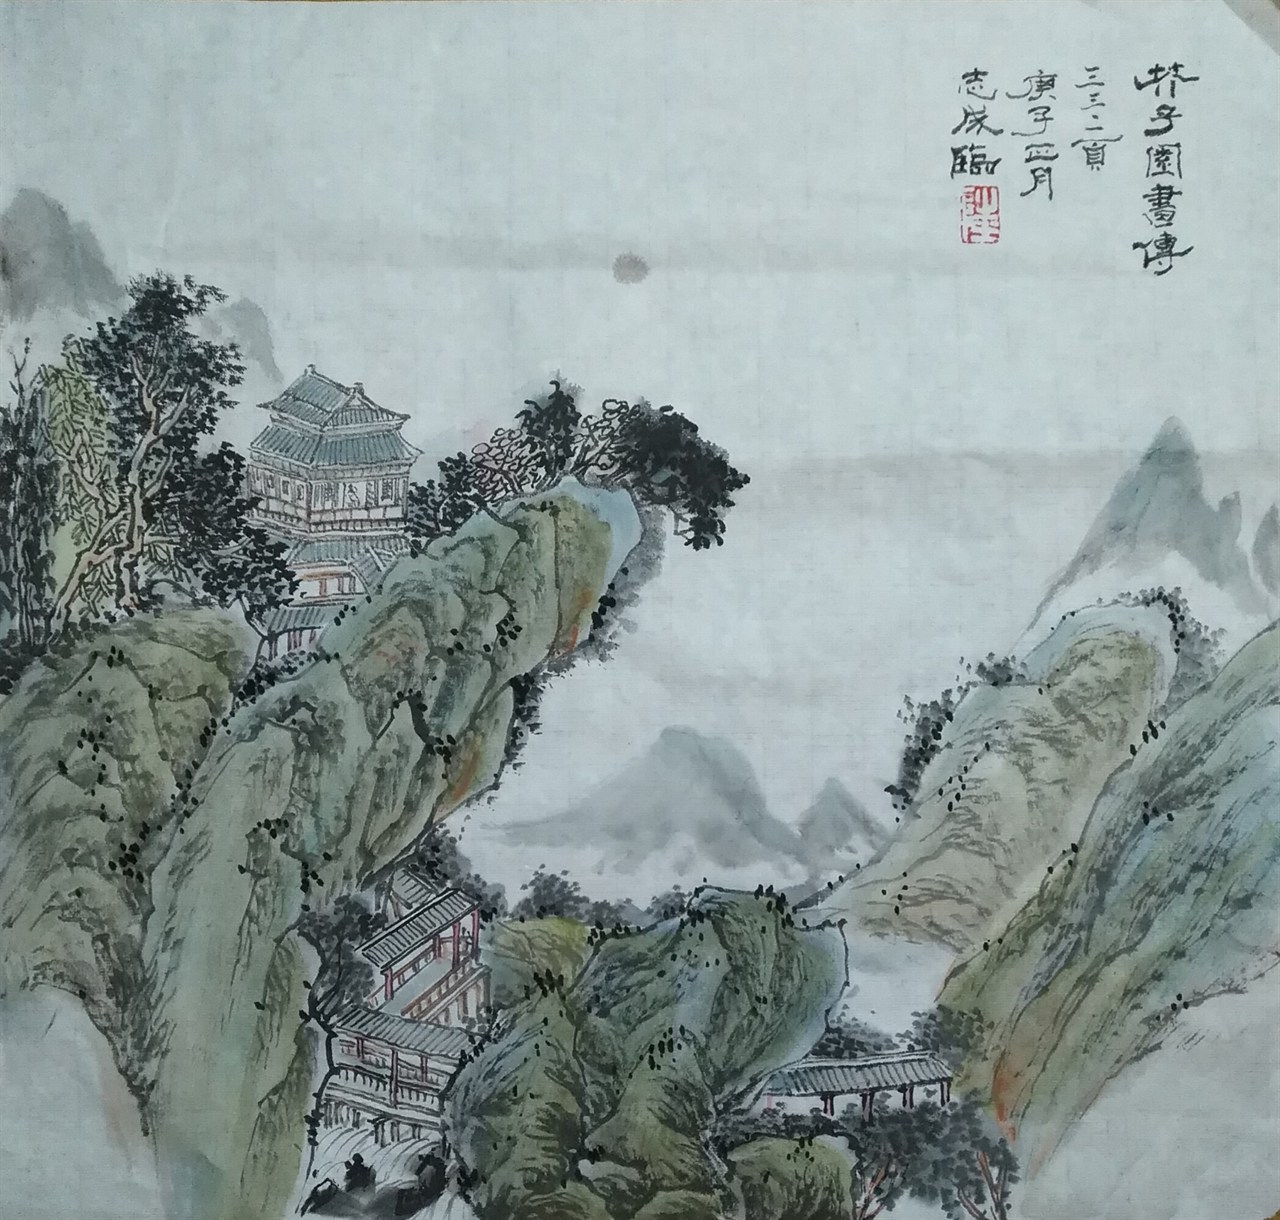 芥子園畫傳
三三二頁
庚子四月
志成臨